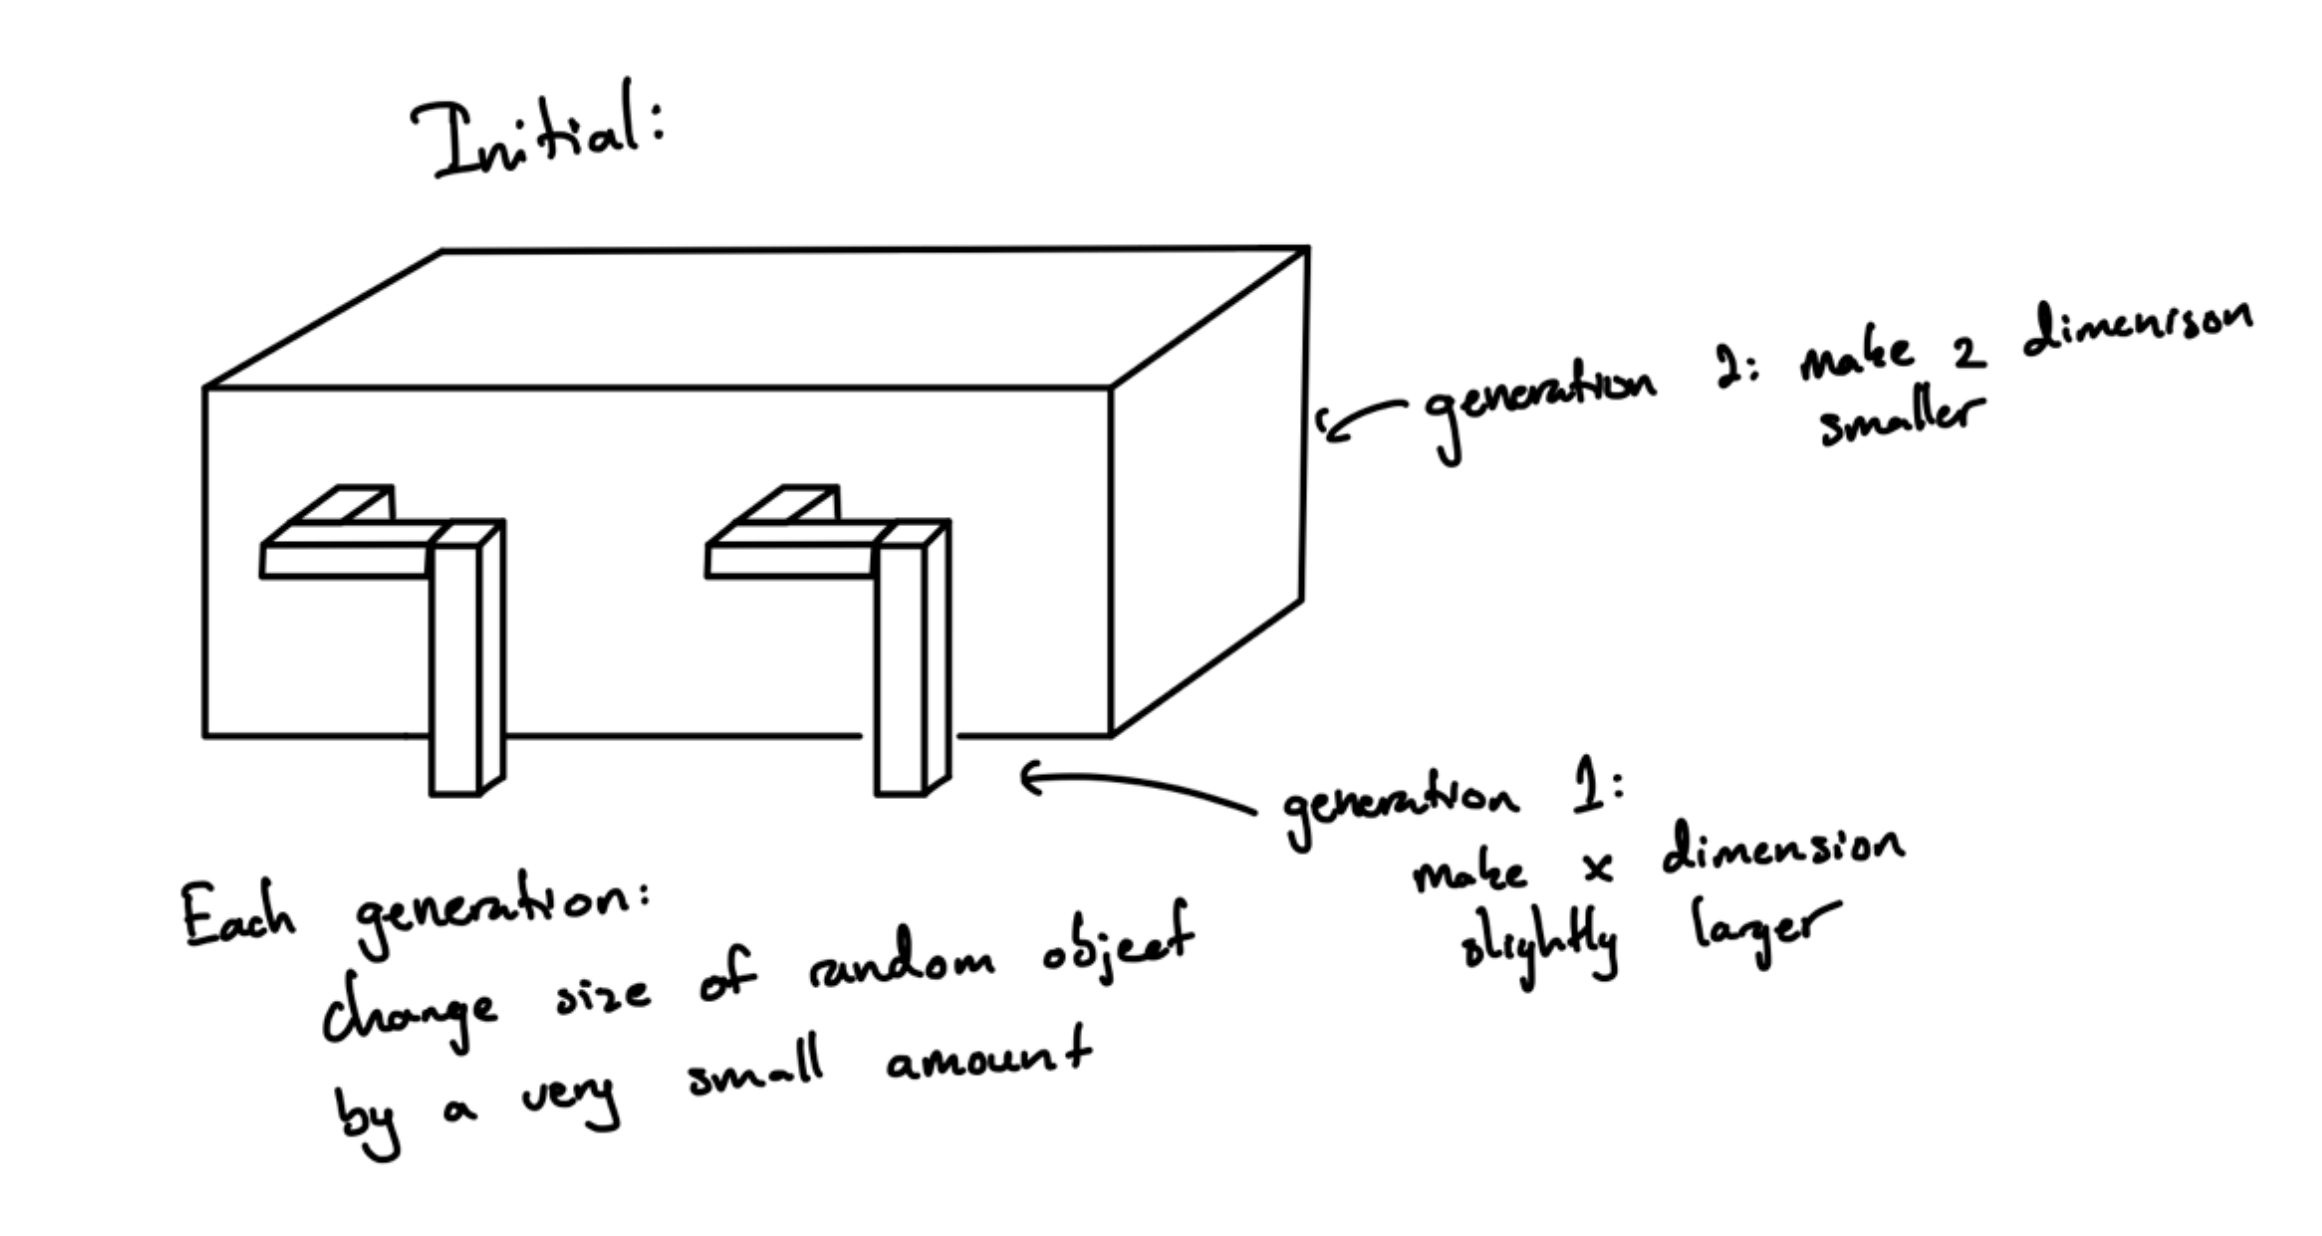 Initial:
generation 2: make z dimension
smaller
generation 1:
make x dimension
slightly larger
Each generation:
change size of random object
by a very small amount